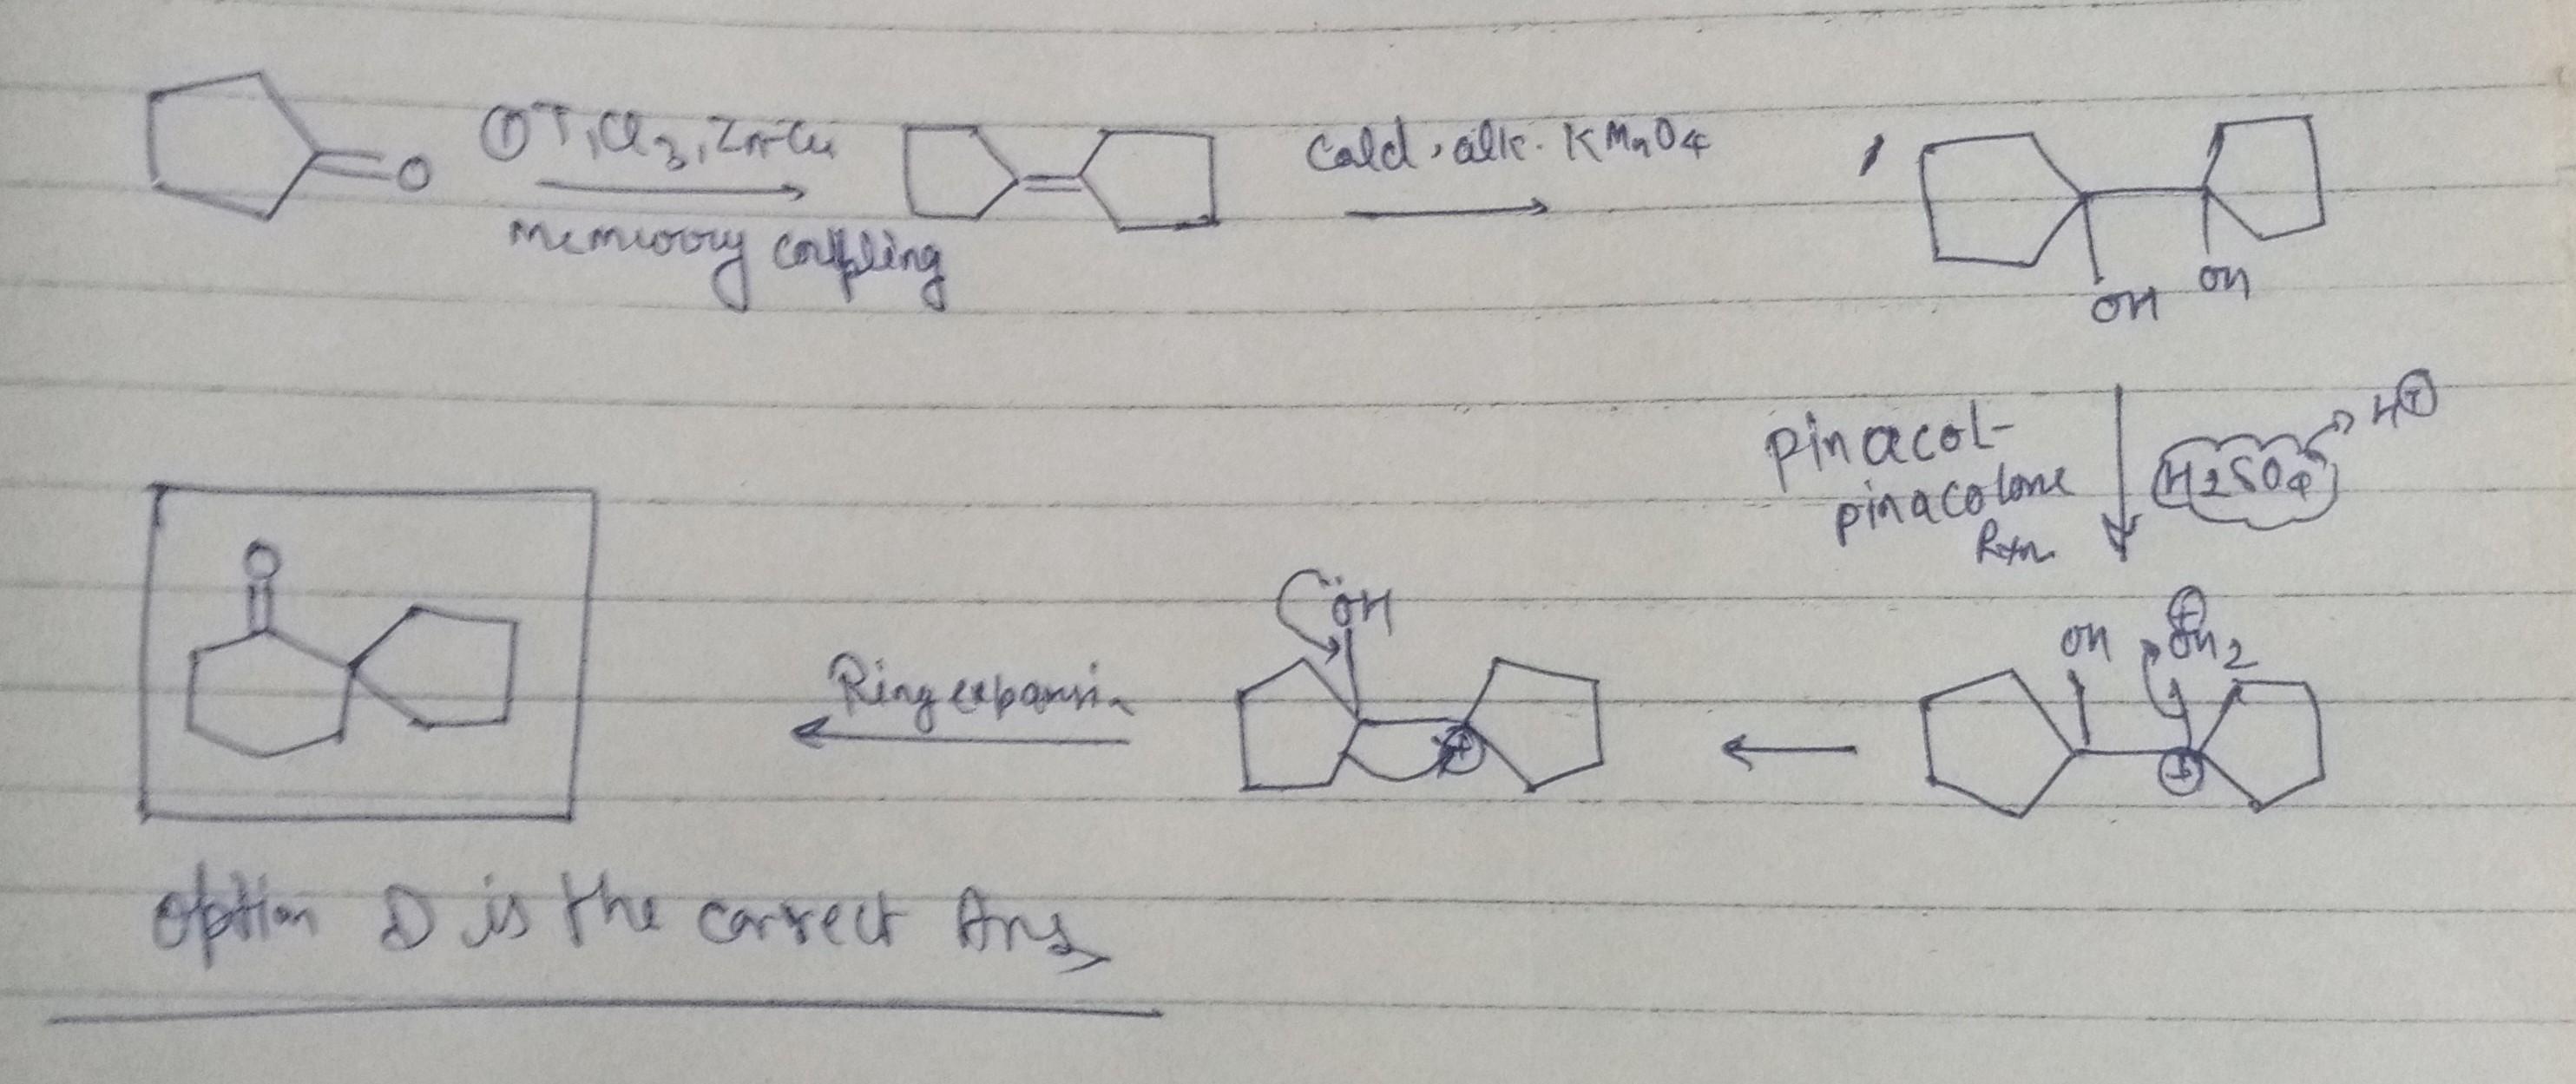 ① TiCl3, Zn-Cu
memurry coupling
Cold, alk. KMnO4
O
OH OH
Pinacol-
pinacolone
Rxn
H2SO4 H⊕
OH ⊕OH2
⊕
ÖH
⊕
Ring expansion
O
Option D is the correct Ans